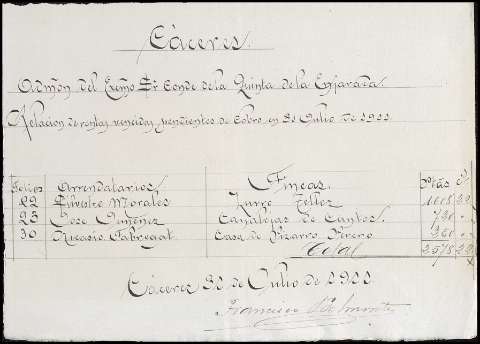 Cáceres.
Admón del Excmo Sr Conde de la Quinta de la Enjarada.
Relacion de rentas vencidas, pendientes de cobro en 31 Julio de 1911
Folios Arrendatarios Fincas. Ptas Cs
Silvestre Morales Zurro Tellez
23 Jose Jimenez Canalejas de Cantos.
30 Nicasio Fabregat Casa de Pizarro Total
Cáceres 31 de Julio de 1911
Francisco Belmonte